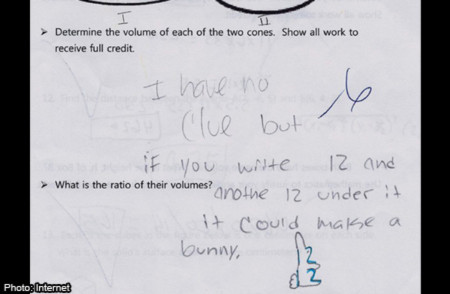 I
II
➤ Determine the volume of each of the two cones. Show all work to
receive full credit.
I have no
Clue but
if you write 12 and
➤ What is the ratio of their volumes? anothe 12 under it
it could make a
bunny.
12
12
Photo: Internet